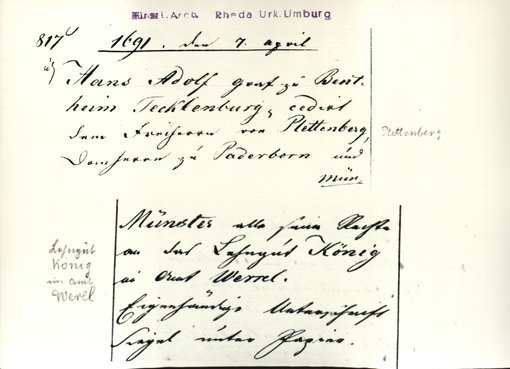 Fürstl. Arch. Rheda Urk. Limburg
817
1691, den 7. april
Hans Adolf graf zu Bent-
heim Tecklenburg, cedirt
dem Freiherrn von Plettenberg,
Domherrn zu Paderborn und
Mün.
Plettenberg
Münster alle seine Rechte
an das Lehngut König
im Amt Werrel.
Eigenhändige Unterschrift
Siegel unter Papier.
Lehngut
König
im Amt
Werel